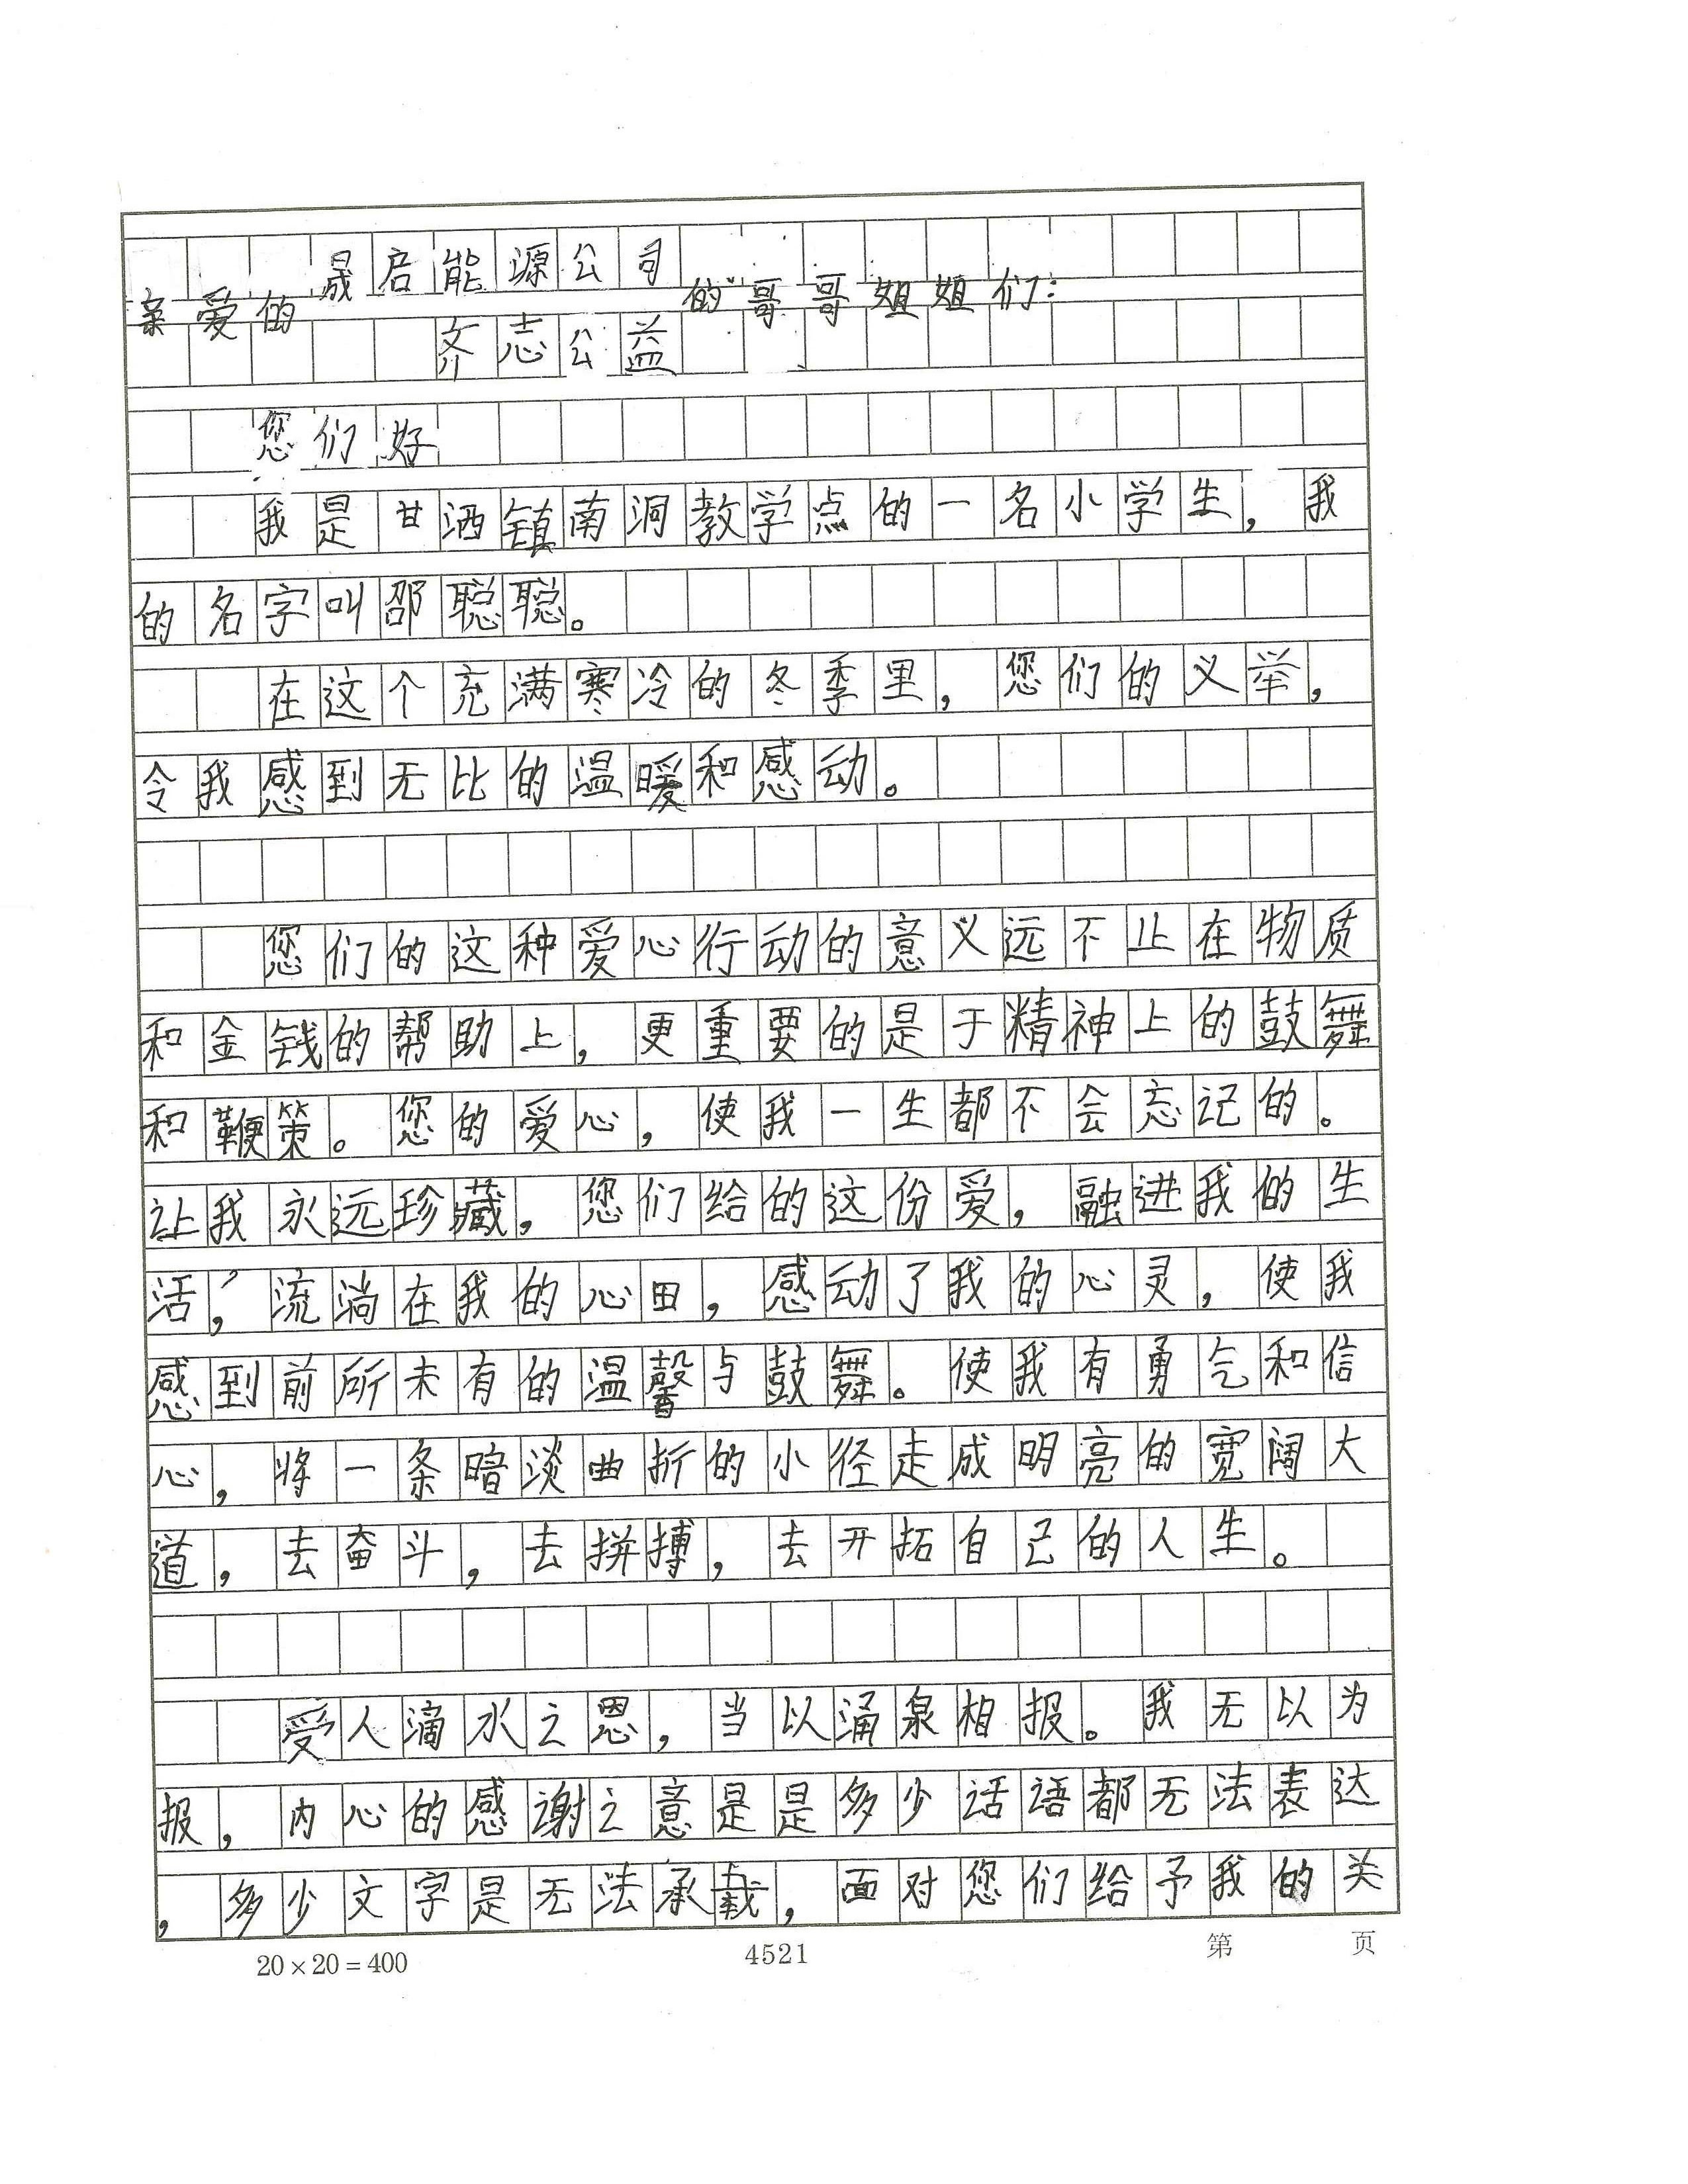 晟启能源公司
亲爱的 的哥哥姐姐们:
齐志公益
您们好
我是甘洒镇南洞教学点的一名小学生，我
的名字叫邵聪聪。
在这个充满寒冷的冬季里，您们的义举，
令我感到无比的温暖和感动。
您们的这种爱心行动的意义远不止在物质
和金钱的帮助上，更重要的是于精神上的鼓舞
和鞭策。您的爱心，使我一生都不会忘记的。
让我永远珍藏，您们给的这份爱，融进我的生
活，流淌在我的心田，感动了我的心灵，使我
感到前所未有的温馨与鼓舞。使我有勇气和信
心，将一条暗淡曲折的小径走成明亮的宽阔大
道，去奋斗，去拼搏，去开拓自己的人生。
受人滴水之恩，当以涌泉相报。我无以为
报，内心的感谢之意是是多少话语都无法表达
，多少文字是无法承载，面对您们给予我的关
20×20=400 4521 第 页